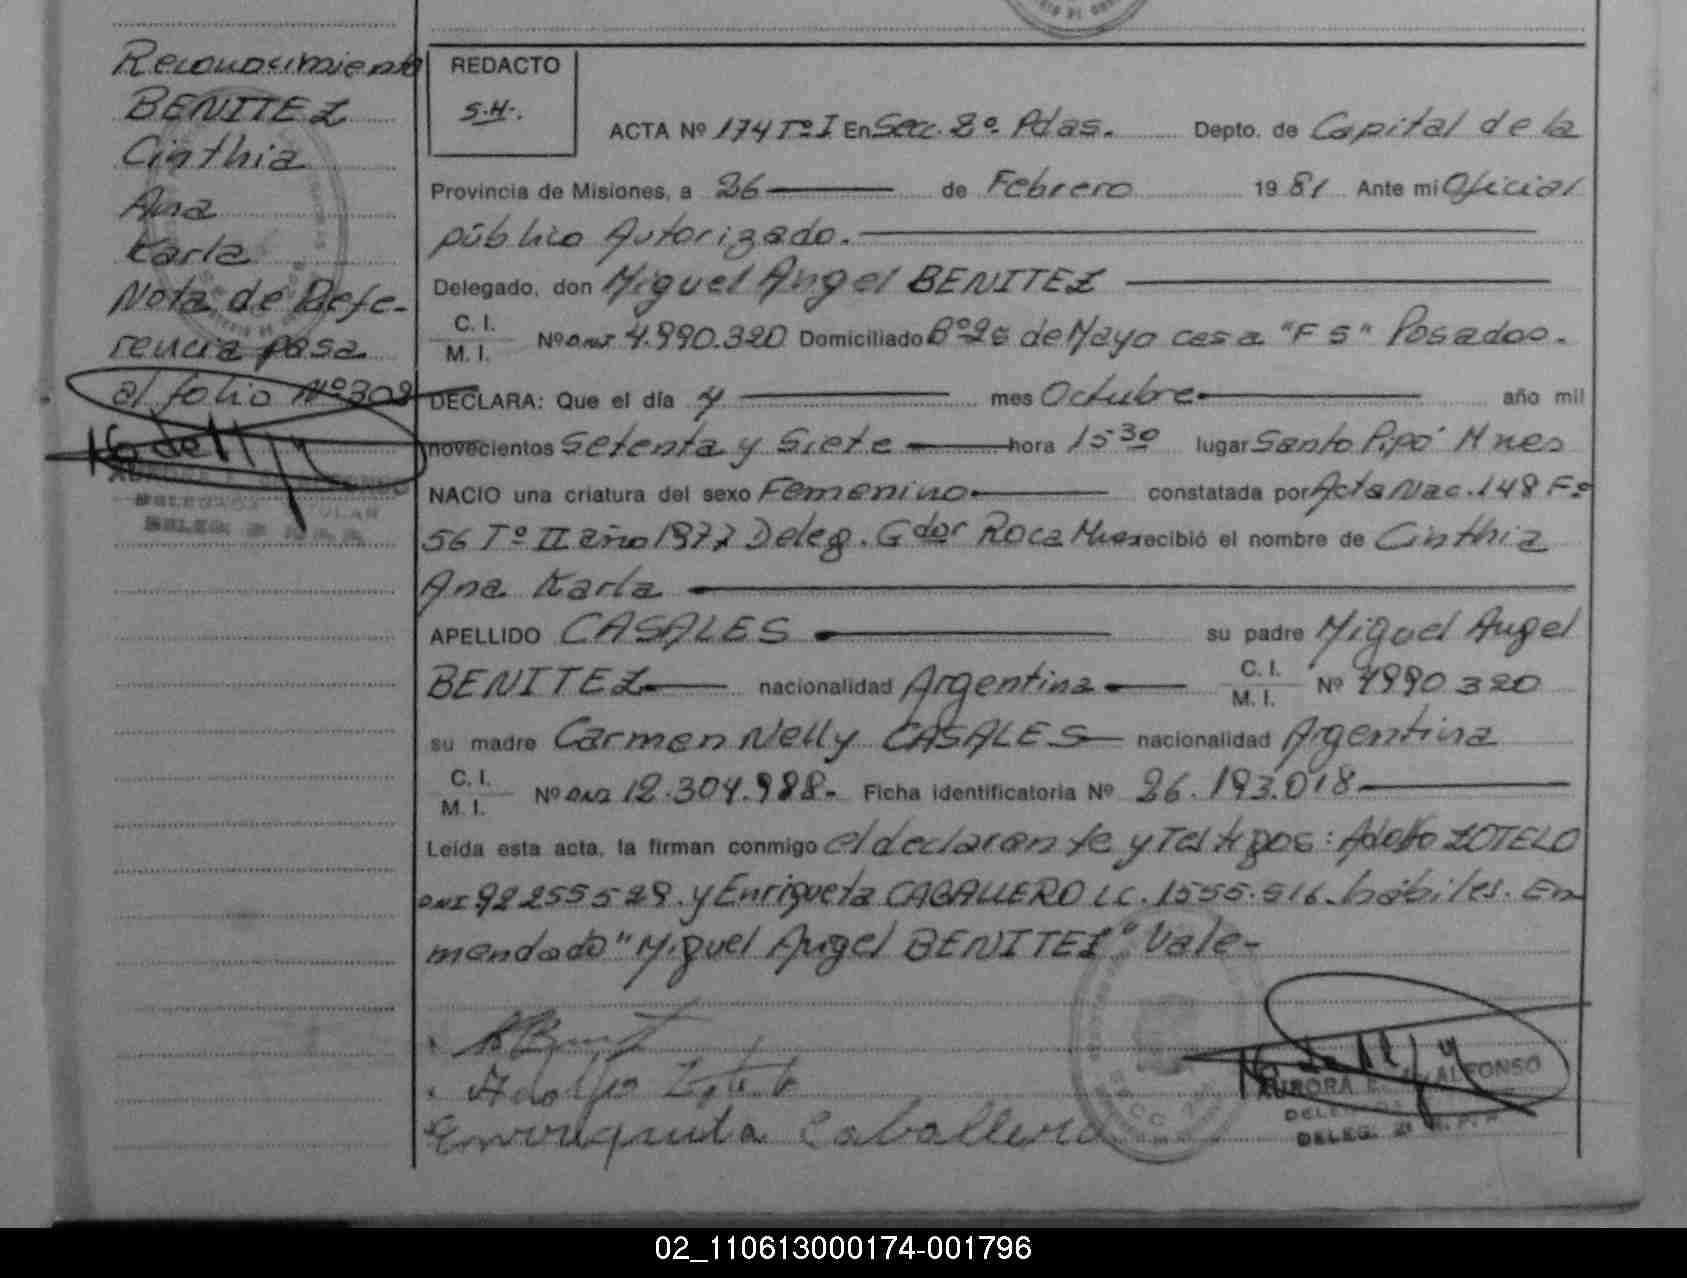 Reconocimiento
BENITEZ
Cinthia
Ana
Karla
Nota de Refe-
rencia pasa
al folio Nº 308
REDACTO
S.H.
ACTA Nº 174 Tº I En Sec. 2º Pdas. Depto. de Capital de la
Provincia de Misiones, a 26 de Febrero 1981 Ante mi Oficial
público Autorizado.
Delegado, don Miguel Angel BENITEZ
C. I.
M. I.
Nº DNI 4.990.320 Domiciliado Bº 25 de Mayo casa "F 5" Posadas.
DECLARA: Que el día 4 mes Octubre año mil
novecientos Setenta y Siete hora 15 30 lugar Santo Pipó Mnes
NACIO una criatura del sexo Femenino constatada por Acta Nac. 148 Fº
56 Tº II año 1977 Deleg. Gdor Roca Mnes recibió el nombre de Cinthia
Ana Karla
APELLIDO CASALES su padre Miguel Angel
BENITEZ nacionalidad Argentina C. I. M. I. Nº 4990320
su madre Carmen Nelly CASALES nacionalidad Argentina
C. I.
M. I.
Nº DNI 12.304.988. Ficha identificatoria Nº 26.193.018
Leída esta acta, la firman conmigo el declarante y Testigos: Adolfo ZOTELO
DNI 92255529. y Enriqueta CABALLERO LC. 1555.516. hábiles. En
mendado "Miguel Angel BENITEZ" Vale-
Adolfo
Enriqueta Caballero
AURORA ALFONSO
DELEG. 2ª
02_110613000174-001796